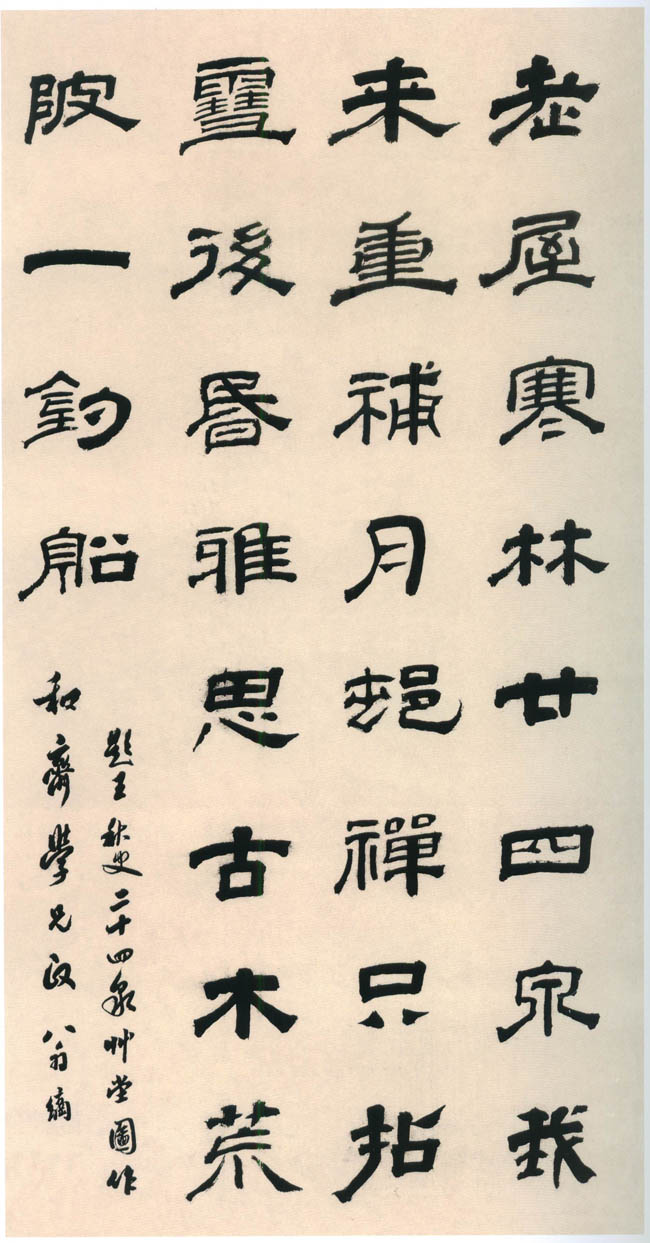 老屋寒林廿四泉我
来重補月禪只拈
雪後昬雅思古木荒
陂一釣船
題王秋史二十四泉艸堂圖作
和齋學兄政 翁方綱